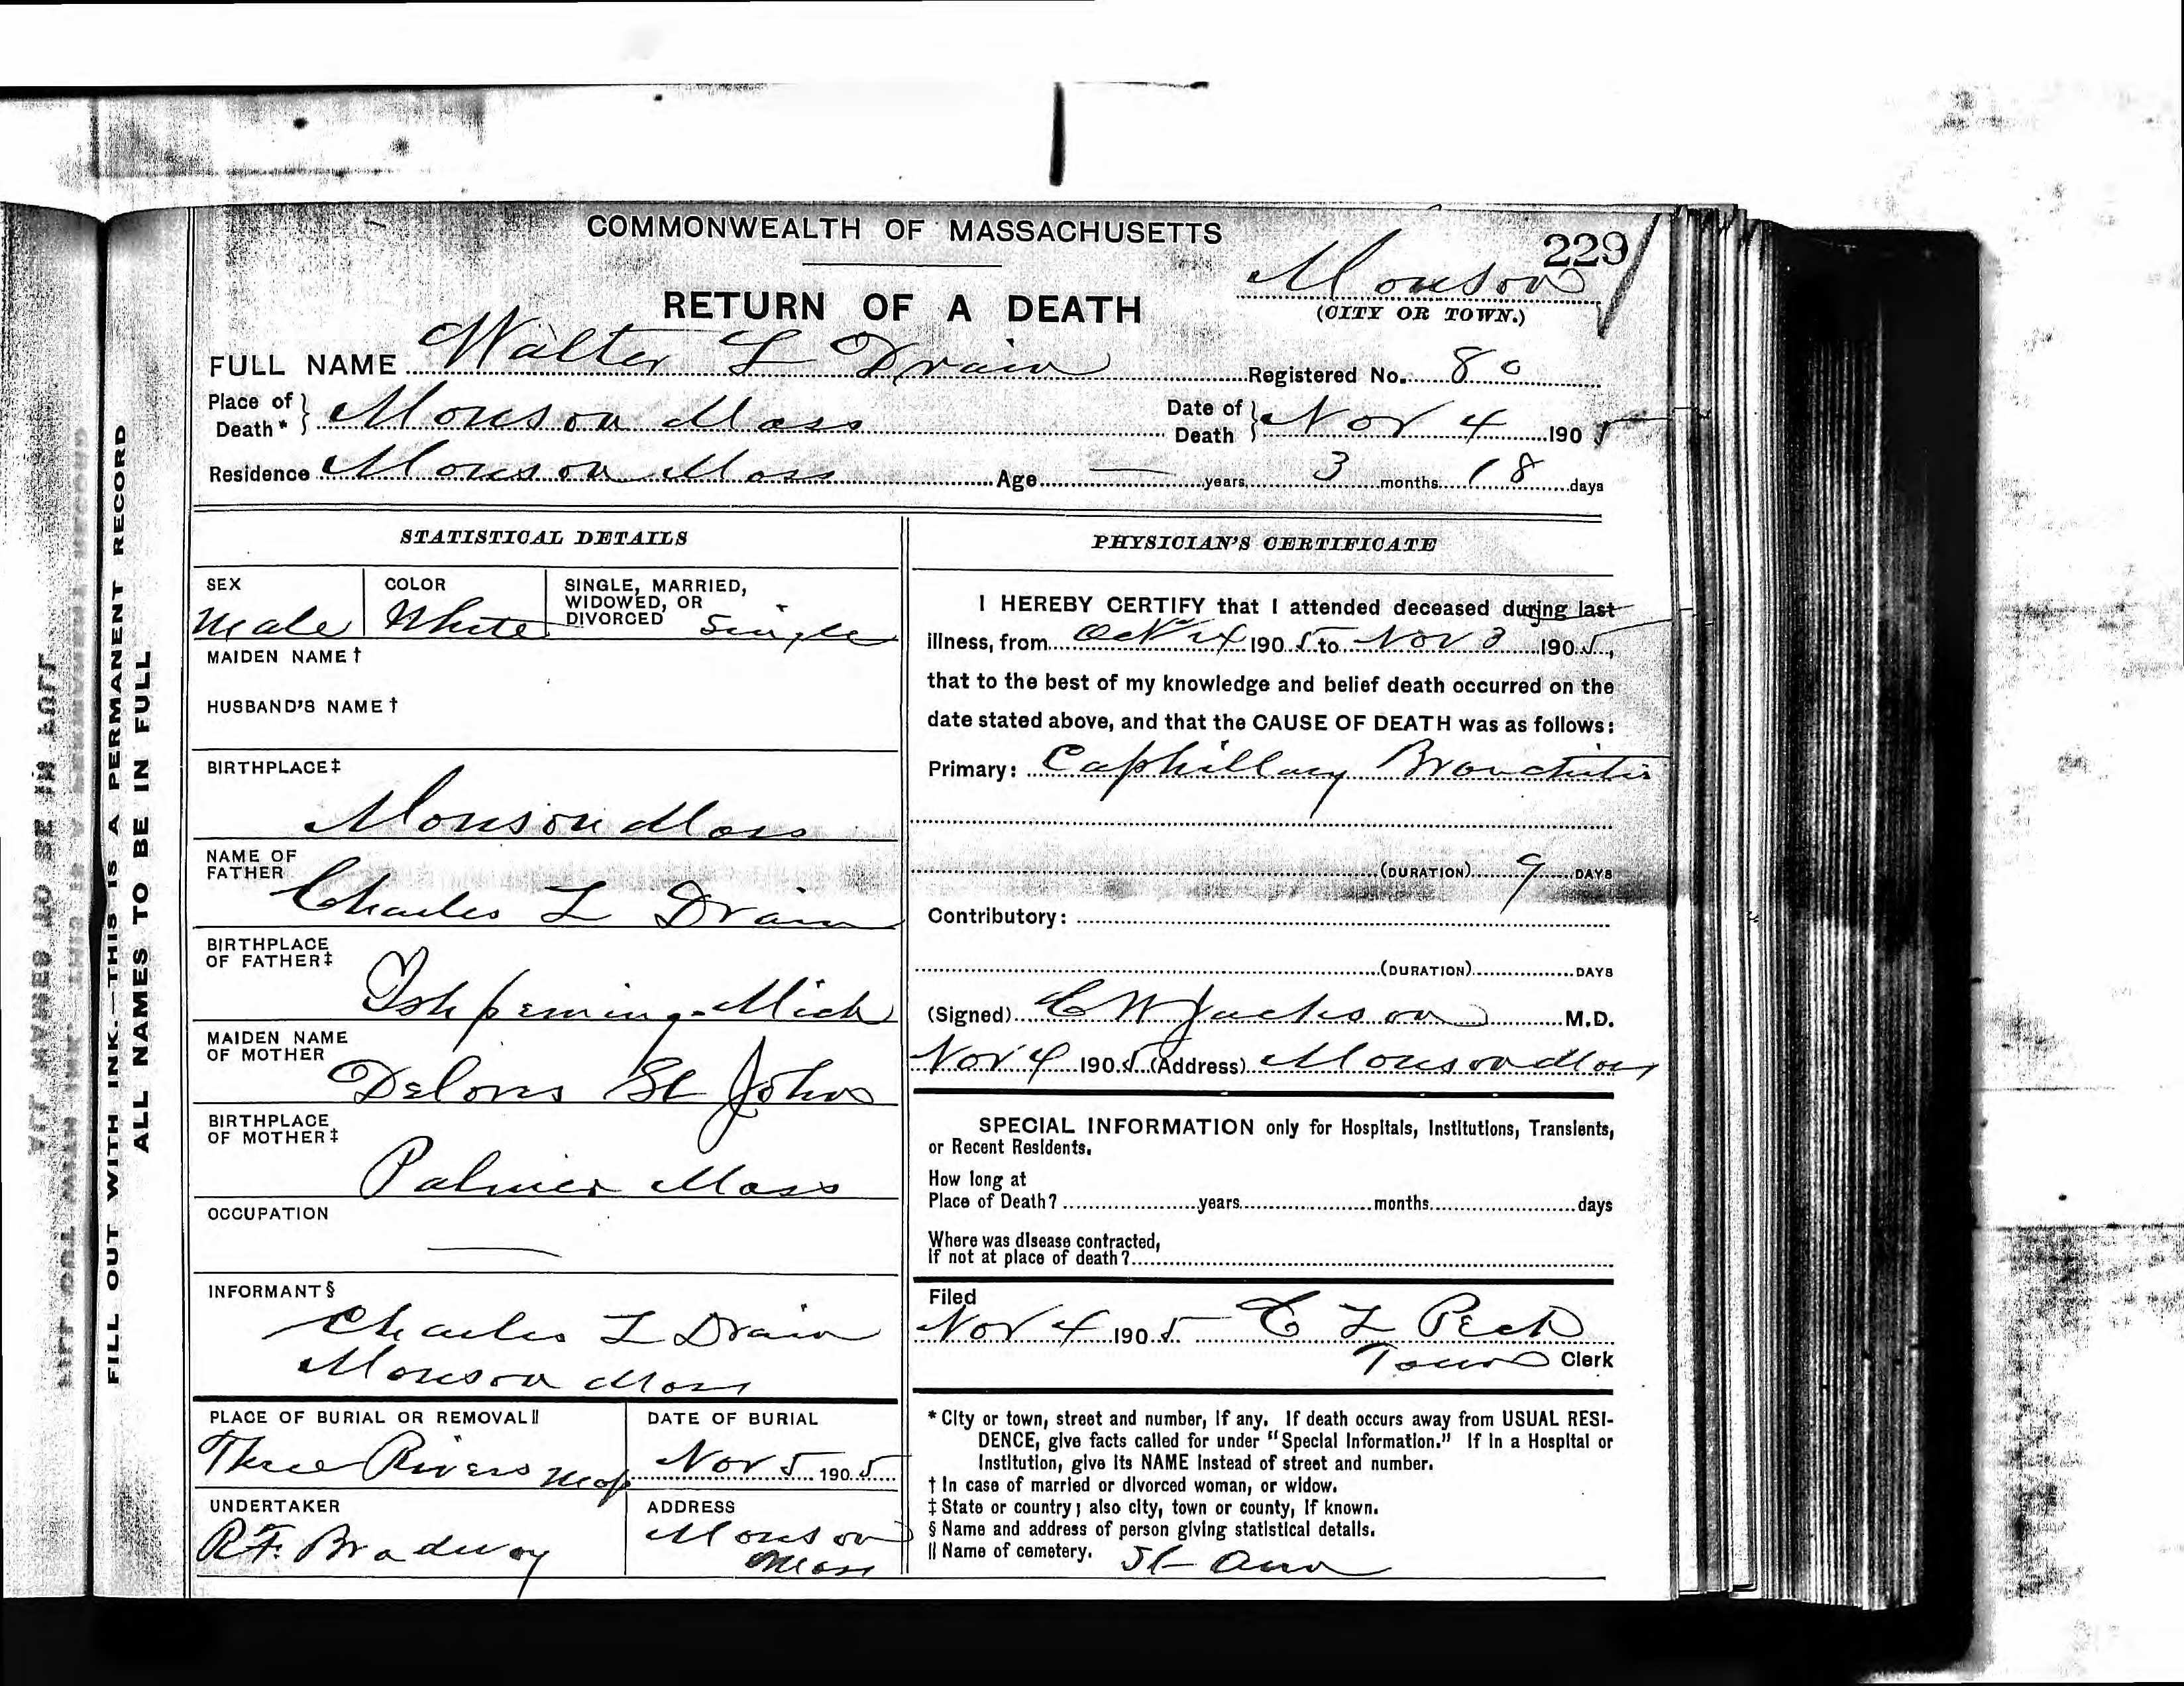 COMMONWEALTH OF MASSACHUSETTS
229
Monson
RETURN OF A DEATH
(CITY OR TOWN.)
FULL NAME Walter L Drain Registered No. 80
Place of Death* Monson Mass Date of Death Nov 4 1905
Residence Monson Mass Age — years, 3 months 18 days
STATISTICAL DETAILS
SEX COLOR SINGLE, MARRIED,
WIDOWED, OR
DIVORCED
Male White Single
MAIDEN NAME†
HUSBAND'S NAME†
BIRTHPLACE‡
Monson Mass
NAME OF
FATHER
Charles L Drain
BIRTHPLACE
OF FATHER‡
Ishpeming. Mich
MAIDEN NAME
OF MOTHER
Delores St John
BIRTHPLACE
OF MOTHER‡
Palmer Mass
OCCUPATION
—
INFORMANT§
Charles L Drain
Monson Mass
PLACE OF BURIAL OR REMOVAL‖ DATE OF BURIAL
Three Rivers Mass Nov 5 1905
UNDERTAKER ADDRESS
R.F. Bradway Monson
Mass
PHYSICIAN'S CERTIFICATE
I HEREBY CERTIFY that I attended deceased during last
illness, from Oct 1905 to Nov 3 1905,
that to the best of my knowledge and belief death occurred on the
date stated above, and that the CAUSE OF DEATH was as follows:
Primary: Caphillary Bronchitis
(DURATION) 9 DAYS
Contributory:
(DURATION) DAYS
(Signed) C W Jackson M.D.
Nov 4 1905 (Address) Monson Mass
SPECIAL INFORMATION only for Hospitals, Institutions, Transients,
or Recent Residents.
How long at
Place of Death? years months days
Where was disease contracted,
If not at place of death?
Filed
Nov 4 1905 E L Peck
Town Clerk
* City or town, street and number, if any. If death occurs away from USUAL RESI-
DENCE, give facts called for under "Special Information." If in a Hospital or
Institution, give its NAME instead of street and number.
† In case of married or divorced woman, or widow.
‡ State or country; also city, town or county, if known.
§ Name and address of person giving statistical details.
‖ Name of cemetery. St Ann
FILL OUT WITH INK.—THIS IS A PERMANENT RECORD
ALL NAMES TO BE IN FULL